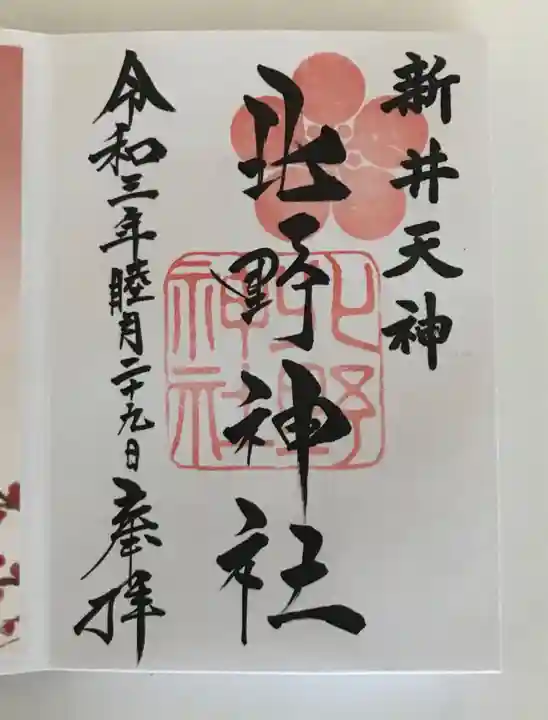 新井天神
北野神社
北野
神社
令和三年睦月二十九日奉拝